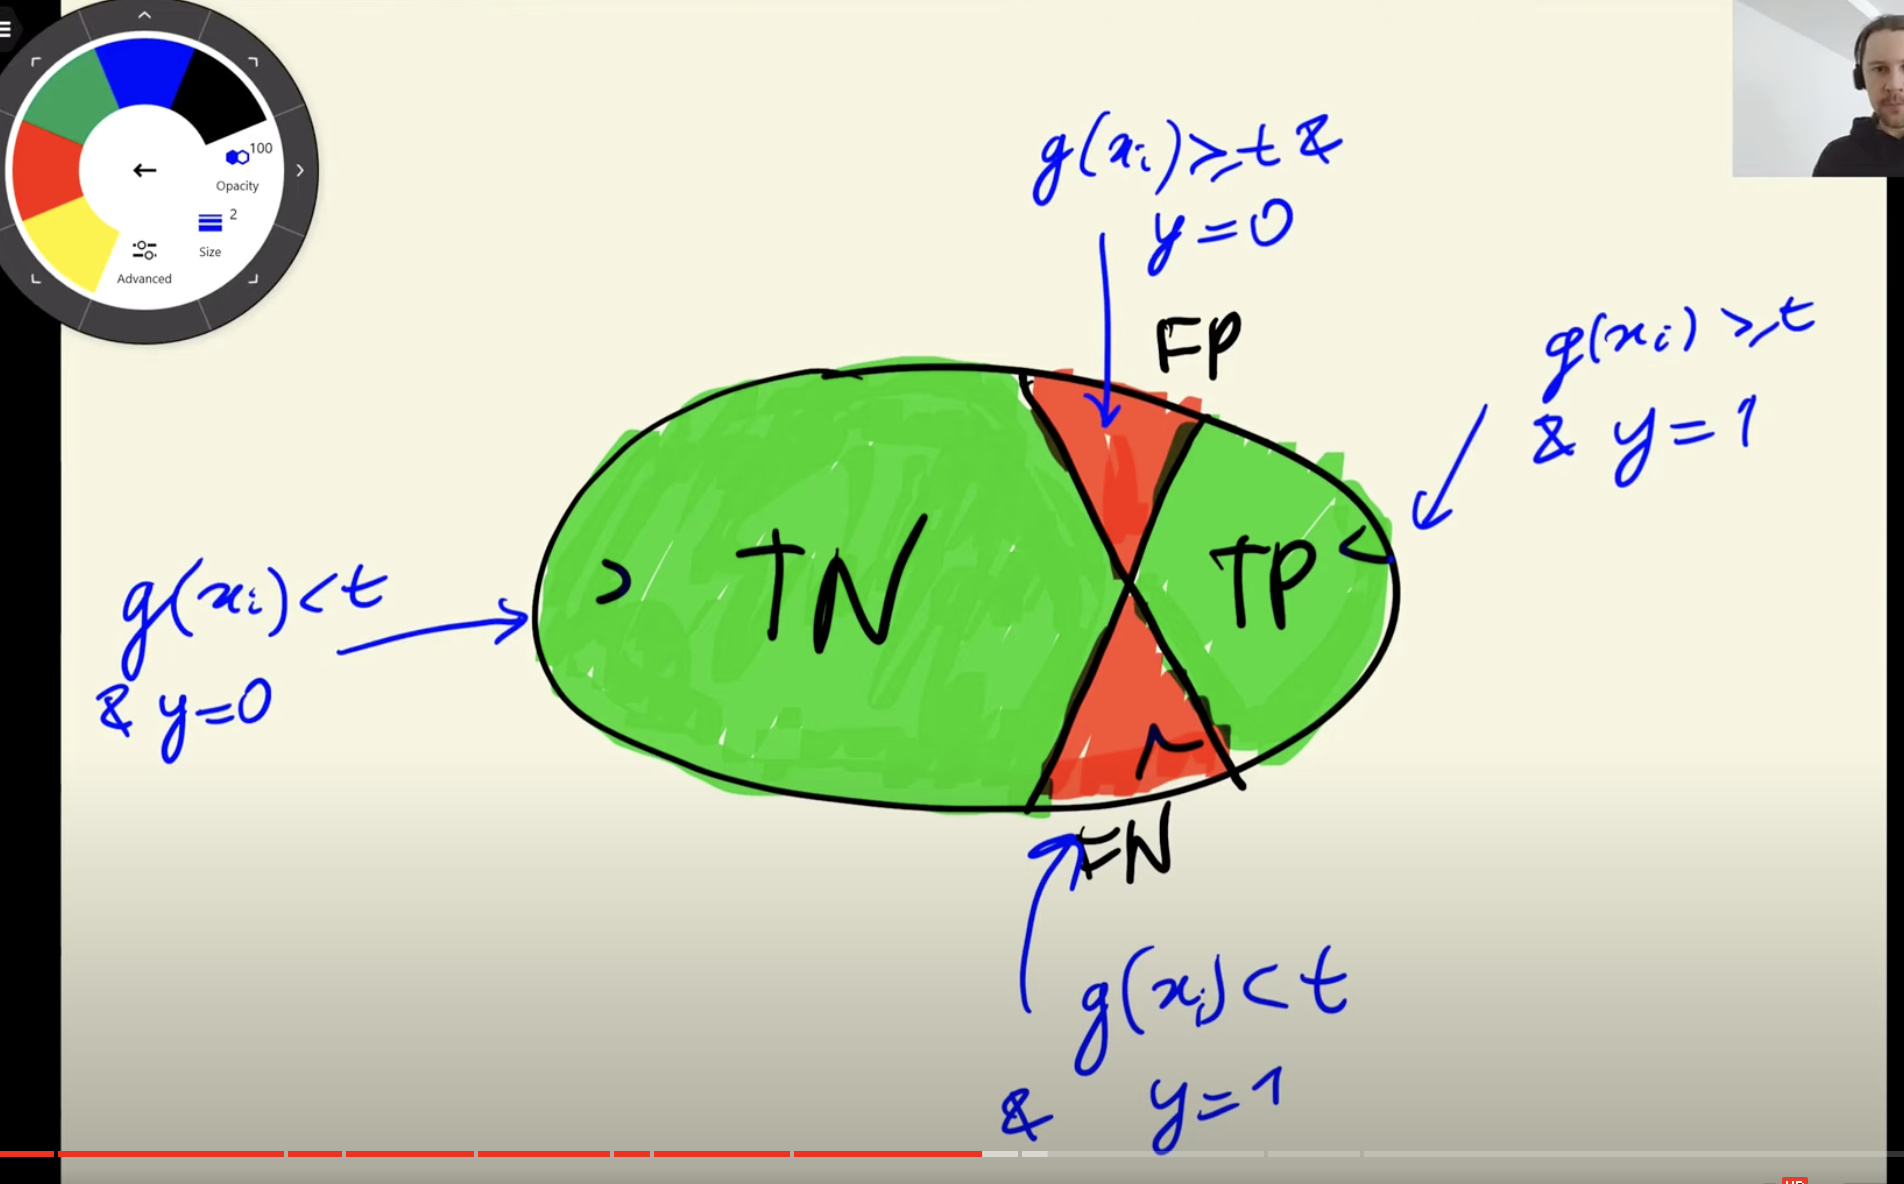 100
Opacity
2
Size
Advanced
g(xᵢ) ≥ t &
y = 0
FP
g(xᵢ) ≥ t
& y = 1
TN
TP
g(xᵢ) < t
& y = 0
FN
g(xᵢ) < t
& y = 1